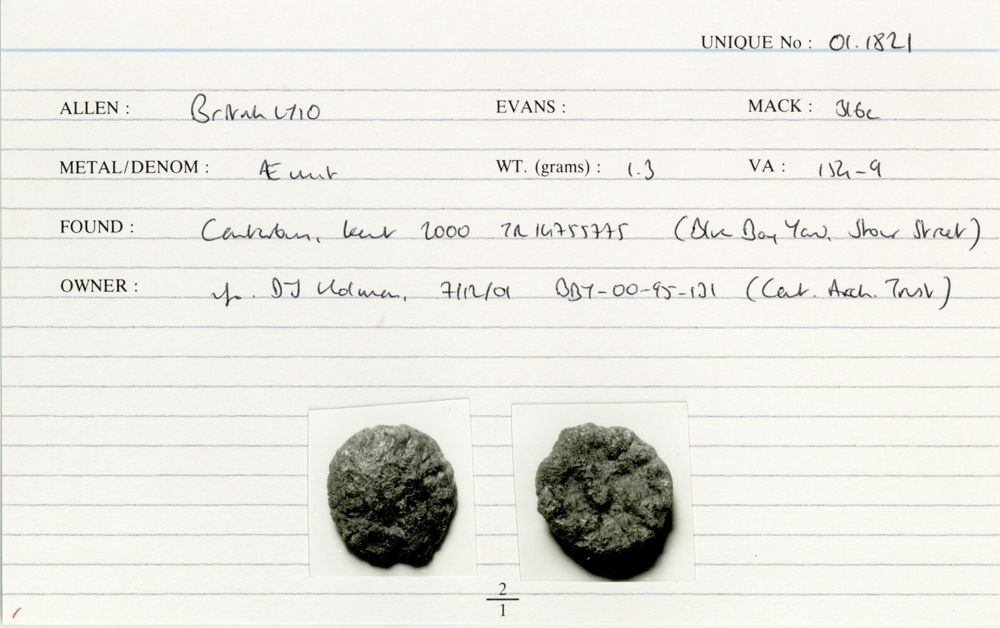 UNIQUE No : 01.1821
ALLEN : British LX10 EVANS : MACK : 316c
METAL/DENOM : Æ unit WT. (grams) : 1.3 VA : 154-9
FOUND : Canterbury, Kent 2000 TR 14755775 (Blue Boy Yard, Stour Street)
OWNER : DJ Holman, 7/12/01 BBY-00-95-131 (Cant. Arch. Trust)
2
1